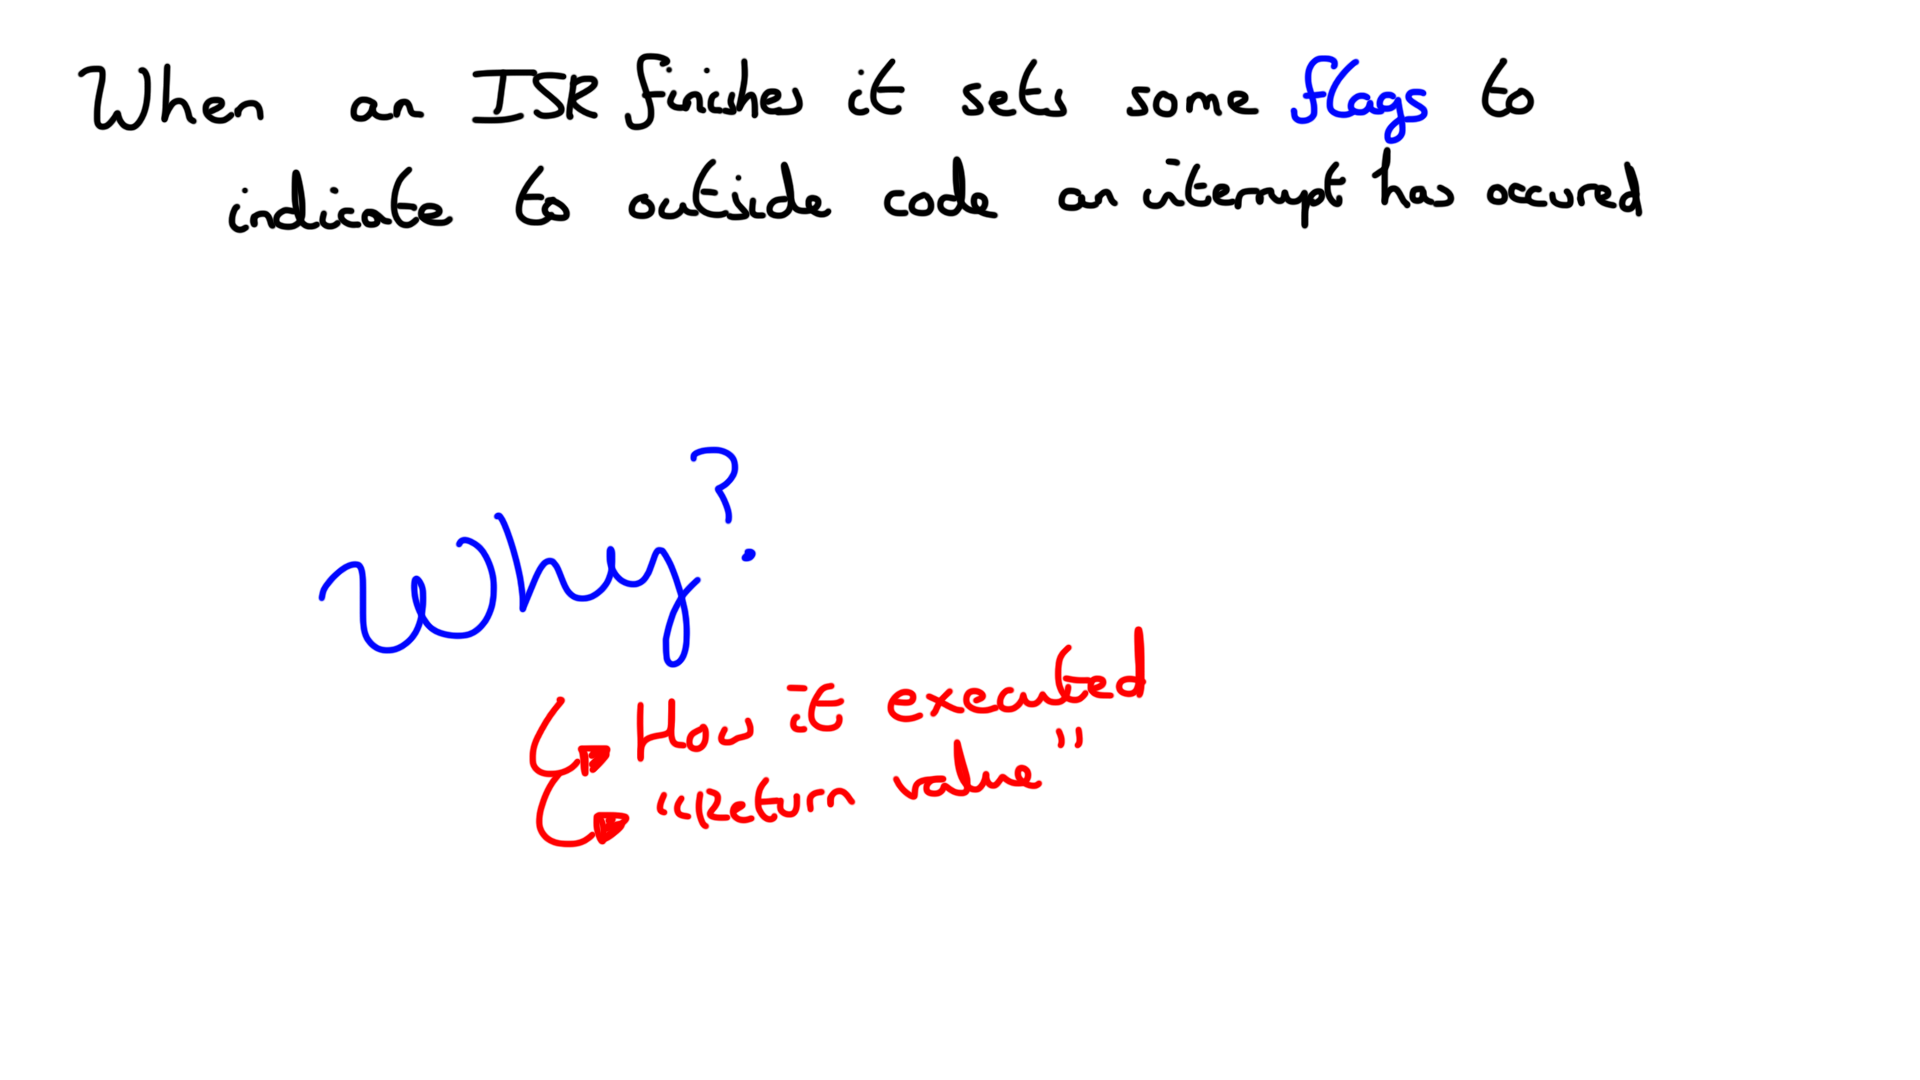 When an ISR finishes it sets some flags to
indicate to outside code an interrupt has occured
Why?
How it executed
"Return value"